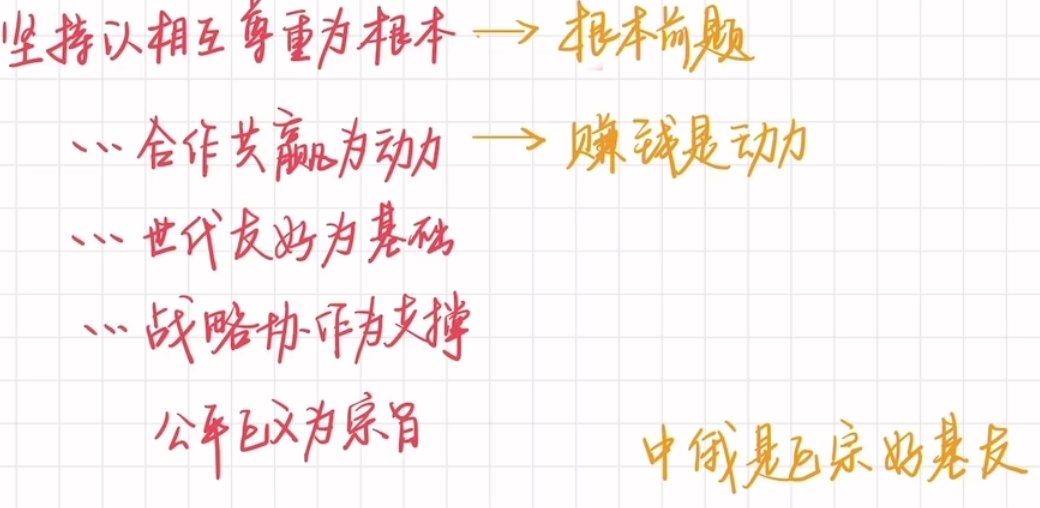 坚持以相互尊重为根本 → 根本前题
… 合作共赢为动力 → 赚钱是动力
… 世代友好为基础
… 战略协作为支撑
公平正义为宗旨
中俄是正宗好基友